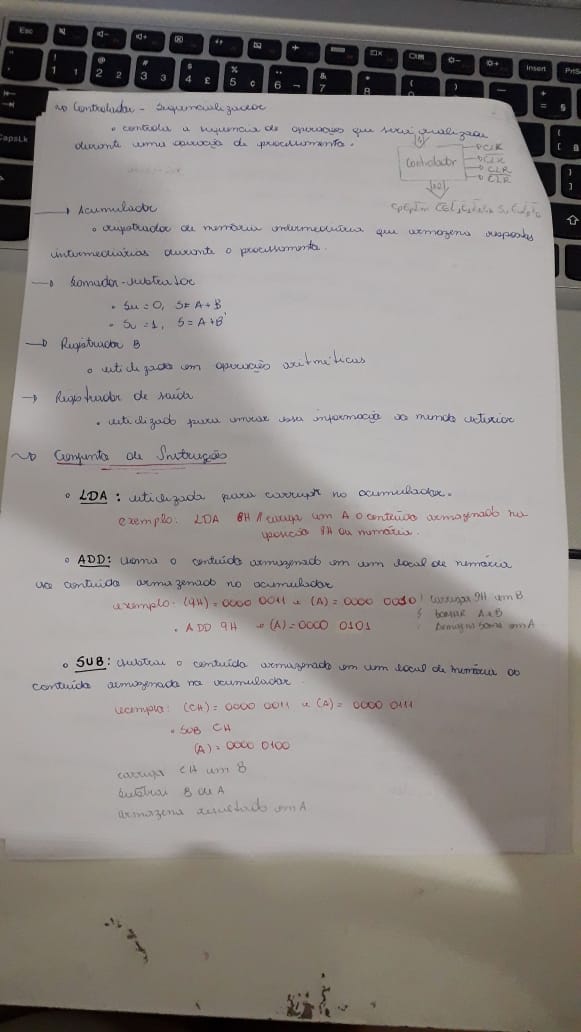 Esc
Insert
PrtS
CapsLk
Controlador - Sequencializador
• controla a sequencia de operações que será realizada
durante uma operação de processamento.
Controlador
CLK
CLK
CLR
CLR
→ Acumulador
• registrador de memória intermediária que armazena respostas
intermediárias durante o processamento.
→ Somador-subtrator
• Su = 0, S = A + B
• Su = 1, S = A + B'
→ Registrador B
• utilizado em operações aritméticas
→ Registrador de saída
• utilizado para enviar essa informação ao mundo exterior
Conjunto de Instruções
• LDA: utilizada para carregar no acumulador.
exemplo: LDA 8H // carrega em A o conteúdo armazenado na
posição 8H da memória.
• ADD: soma o conteúdo armazenado em um local de memória
ao conteúdo armazenado no acumulador
exemplo: (9H) = 0000 0011 e (A) = 0000 0010 carregar 9H em B
somar A+B
• ADD 9H → (A) = 0000 0101 Armazena soma em A
• SUB: subtrai o conteúdo armazenado em um local de memória do
conteúdo armazenado no acumulador
exemplo: (CH) = 0000 0011 e (A) = 0000 0111
• SUB CH
(A) = 0000 0100
carrega CH em B
Subtrai B de A
armazena resultado em A